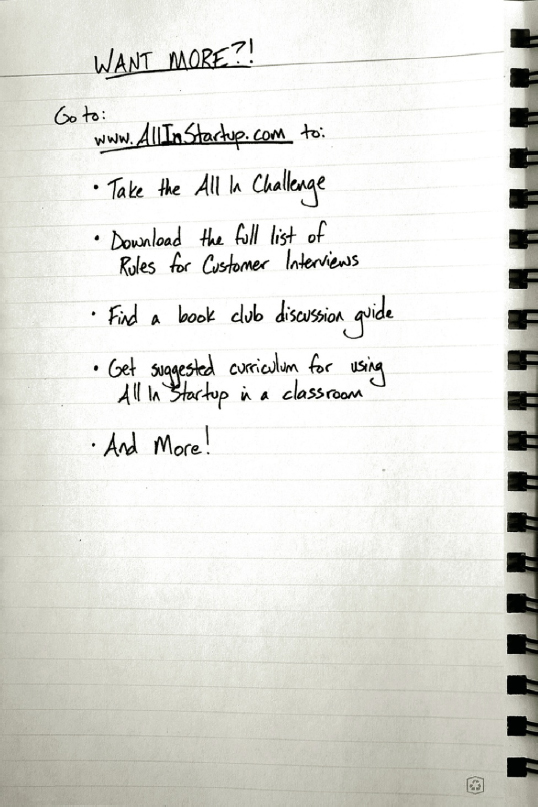 WANT MORE?!
Go to:
www.AllInStartup.com to:
• Take the All In Challenge
• Download the full list of
Rules for Customer Interviews
• Find a book club discussion guide
• Get suggested curriculum for using
All In Startup in a classroom
• And More!